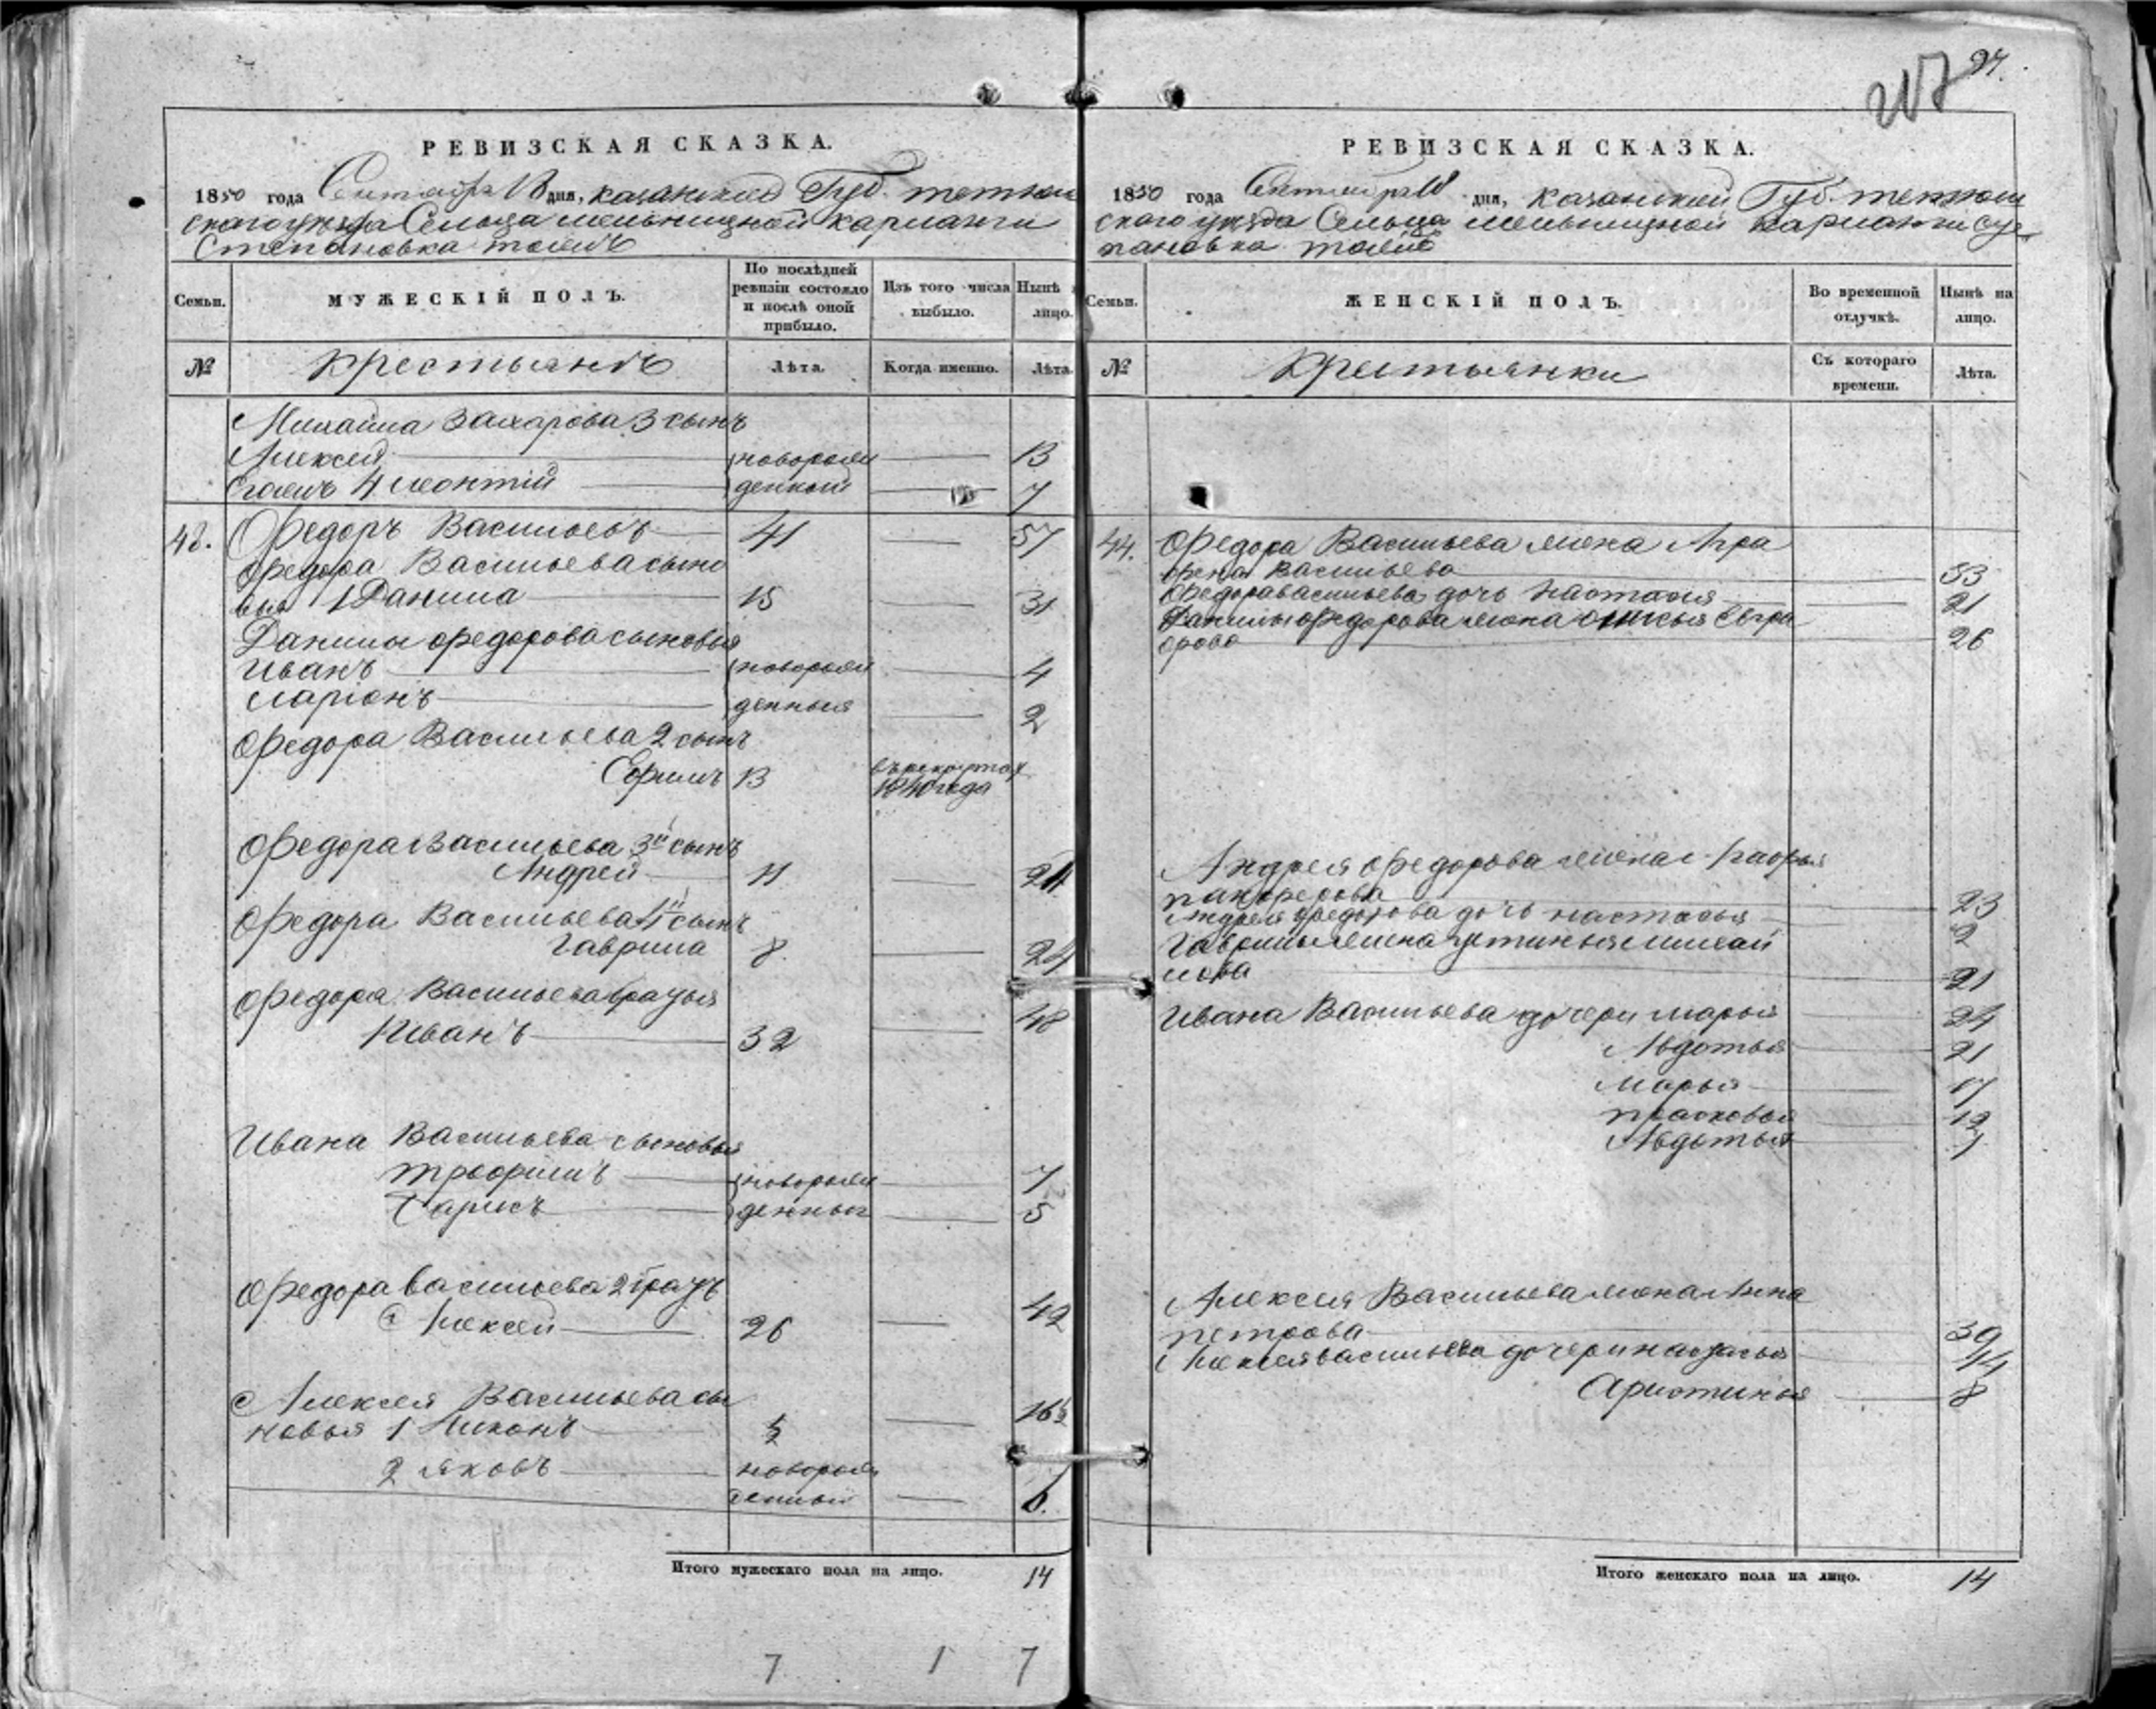 РЕВИЗСКАЯ СКАЗКА.
1850 года Сентября 18 дня, казанской Губ. тетюш
скаго уезда Сельца мельничной кармалги
Степановка тожъ
Семьи.
МУЖЕСКІЙ ПОЛЪ.
По послѣдней ревизіи состояло и послѣ оной прибыло.
Изъ того числа выбыло.
Нынѣ лицо.
№
крестьянъ
Лѣта.
Когда именно.
Лѣта.
Михайла Захарова 3 сынъ
Алексей новорож 13
4 Леонтій денной 7
Федоръ Васильевъ 41 57
Федора Васильева сыно
вья 1 Данила 15 31
Данилы Федорова сыновья
Иванъ новорож 4
Ларіонъ денныя 2
Федора Васильева 2 сынъ
Ефимъ 13 въ рекрутах
1840 года
Федора Васильева 3й сынъ
Андрей 11
Федора Васильева 4й сынъ
Гаврила 8. 24
Федора Васильева братья
1 Иванъ 32 48
Ивана Васильева сыновья
Трофимъ новорож 7
денныя 5
Федора Васильева 2 братъ
Алексей 26 42
Алексея Васильева сы
новья 1 16½
2 Яковъ новорож
денный 6.
Итого мужескаго пола на лицо. 14
7 1 7
94.
РЕВИЗСКАЯ СКАЗКА.
1850 года Сентября 18 дня, казанской Губ. тетюш
скаго уезда Сельца мельничной кармалги Сте
пановка тожъ
Семьи.
ЖЕНСКІЙ ПОЛЪ.
Во временной отлучкѣ.
Нынѣ на лицо.
№
Крестьянки
Съ котораго времени.
Лѣта.
44. Федора Васильева жена Агра
фена Васильева 53
Федора Васильева дочь Настасья 21
Данилы Федорова жена
26
Андрея Федорова жена
панферова 23
Андрея Федорова дочь настасья 2
Гаврилы жена устинья михай
лова 21
Ивана Васильева дочери марья 24
Авдотья 21
Марья 17
прасковья 12
Авдотья
Алексея Васильева жена Анна
петрова 39
Алексея васильева дочери настасья 14
Аристинья 8
Итого женскаго пола на лицо. 14